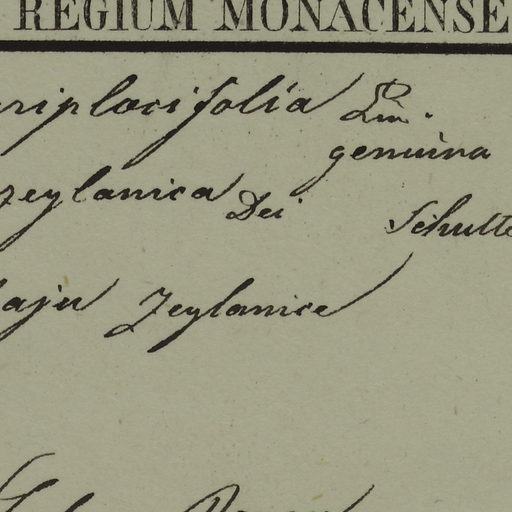 REGIUM MONACENSE
riplocifolia Lin.
genuina
zeylanica Dei Schulte
aju Zeylanice